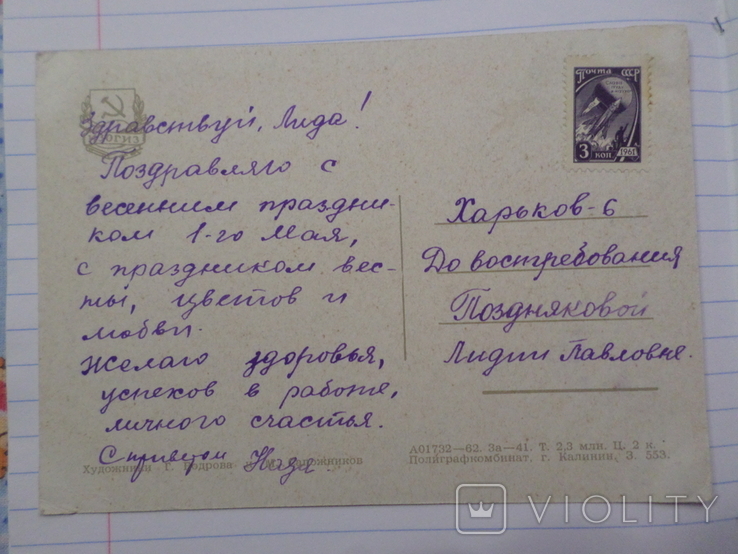 Здравствуй, Лида!
Поздравляю с
весенним праздни-
ком 1-го Мая,
с праздником вес-
ны, цветов и
любви.
Желаю здоровья,
успехов в работе,
личного счастья.
С приветом Надя.
Художники Г. Бедрова художников
ПОЧТА СССР
3 КОП
1961
Харьков-6
До востребования
Поздняковой
Лидии Павловне.
А01732—62. За—41. Т. 2,3 млн. Ц. 2 к.
Полиграфкомбинат, г. Калинин, З. 553.
VIOLITY